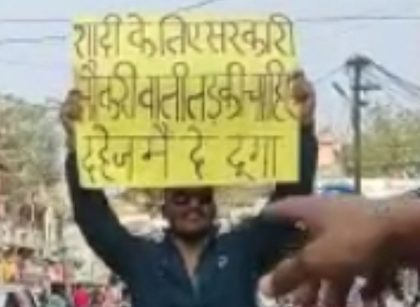 शादी के लिए सरकारी
नौकरी वाली लड़की चाहिए
दहेज मैं दे दूगा